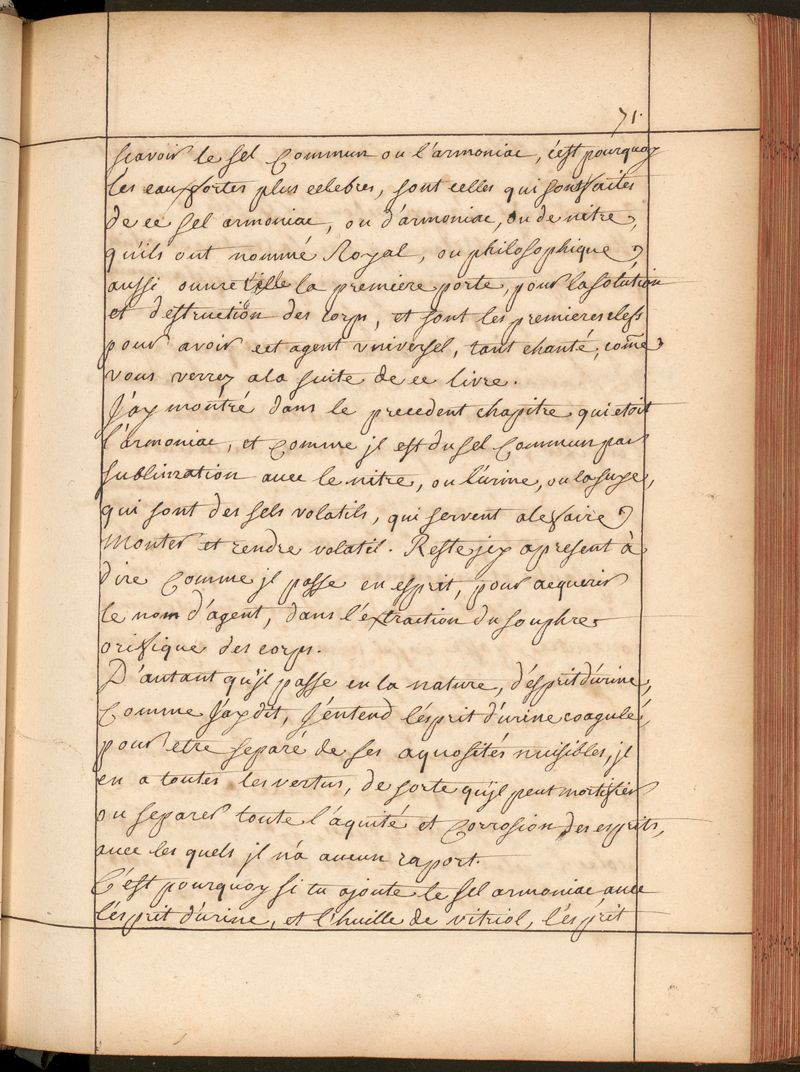 71.
scavoir le sel Commun ou l'armoniac, c'est pourquoy
les eau fortes plus celebres, sont celles qui sont faites
de ce sel armoniac, ou d'armoniac, ou de nitre,
qu'ils ont nommé Royal, ou philosophique,
aussi ouvre t'elle la premiere porte, pour la solution
et destruction des corps, et sont les premieres clefs
pour avoir cet agent vniversel, tant chanté, come
vous verrez a la suite de ce livre.
J'ay montré dans le precedent chapitre qui etoit
l'armoniac, et comme jl est du sel Commun par
sublimation avec le nitre, ou l'urine, ou la suye,
qui sont des sels volatils, qui servent a le faire
monter et rendre volatil. Reste jcy apresent à
dire Comme jl passe en esprit, pour acquerir
le nom d'agent, dans l'extraction du souphre
orifique des corps.
D'autant qu'jl passe en la nature, d'esprit d'urine,
Comme J'ay dit, J'entend l'esprit d'urine coagulé,
pour etre separé de ses aquosités nuisibles, jl
en a toutes les vertus, de sorte qu'jl peut mortifier
ou separer toute l'aquité et Corrosion des esprits,
avec les quels jl n'a aucun raport.
C'est pourquoy si tu ajoute le sel armoniac avec
l'esprit d'urine, et l'huille de vitriol, l'esprit